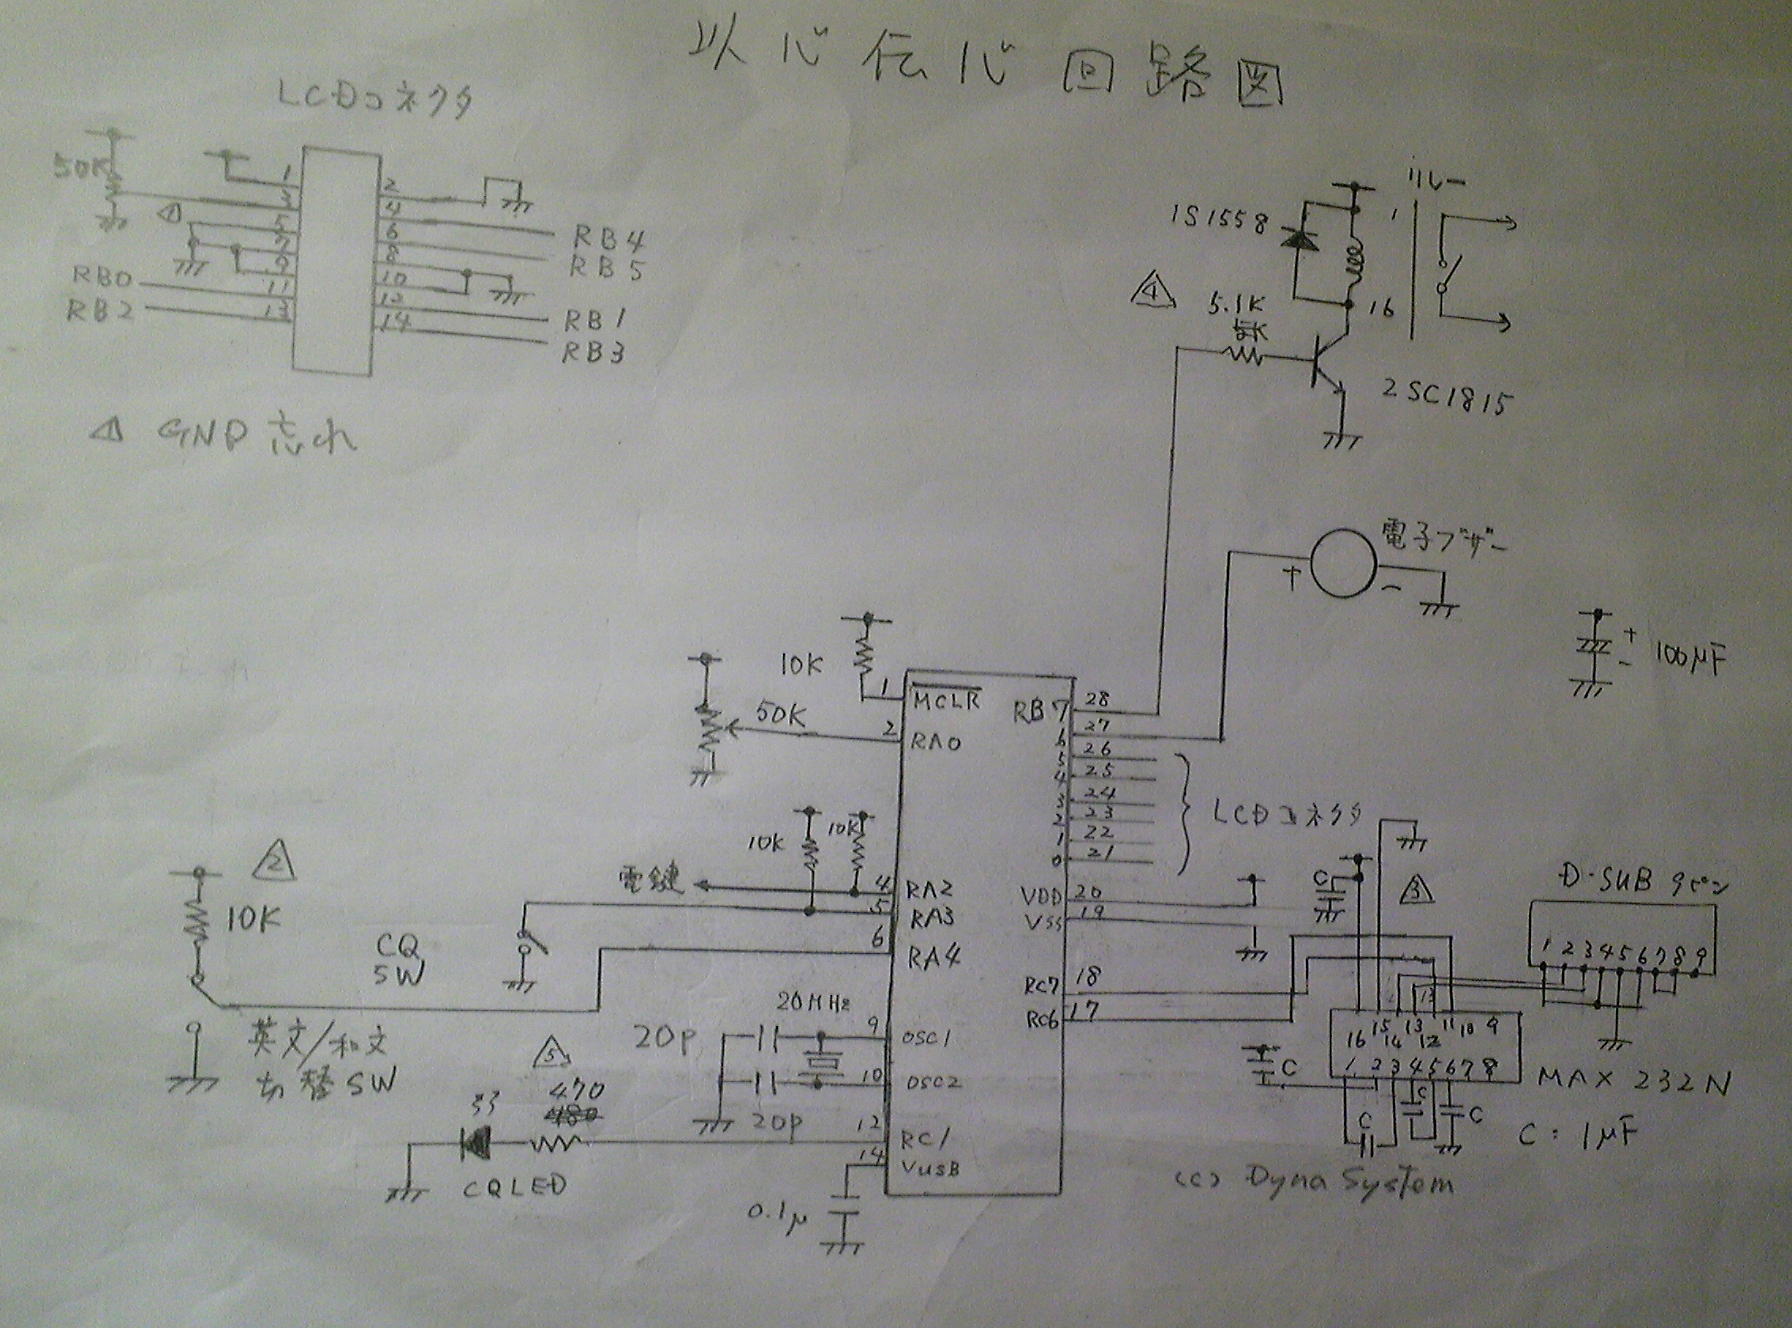 以心伝心 回路図
LCDコネクタ
50K
1
3
5
7
9
11
13
2
4
6
8
10
12
14
RB4
RB5
RB0
RB2
RB1
RB3
1
1 GND 忘れ
リレー
1S1558
1
16
4
5.1K
5K
2SC1815
電子ブザー
+
-
+
-
100μF
10K
50K
1
2
MCLR
RA0
RB7
6
5
4
3
2
1
0
28
27
26
25
24
23
22
21
LCDコネクタ
10K
10K
電鍵
4
5
6
RA2
RA3
RA4
VDD
VSS
20
19
2
10K
CQ
SW
英文/和文
切替SW
RC7
RC6
18
17
20MHz
20p
20p
9
10
OSC1
OSC2
5
470
480
CQLED
12
14
RC1
VUSB
0.1μ
C
3
D-SUB 9ピン
1 2 3 4 5 6 7 8 9
16 15 14 13 12 11 10 9
1 2 3 4 5 6 7 8
C
C
C
C
MAX 232N
C : 1μF
(c) Dyna System